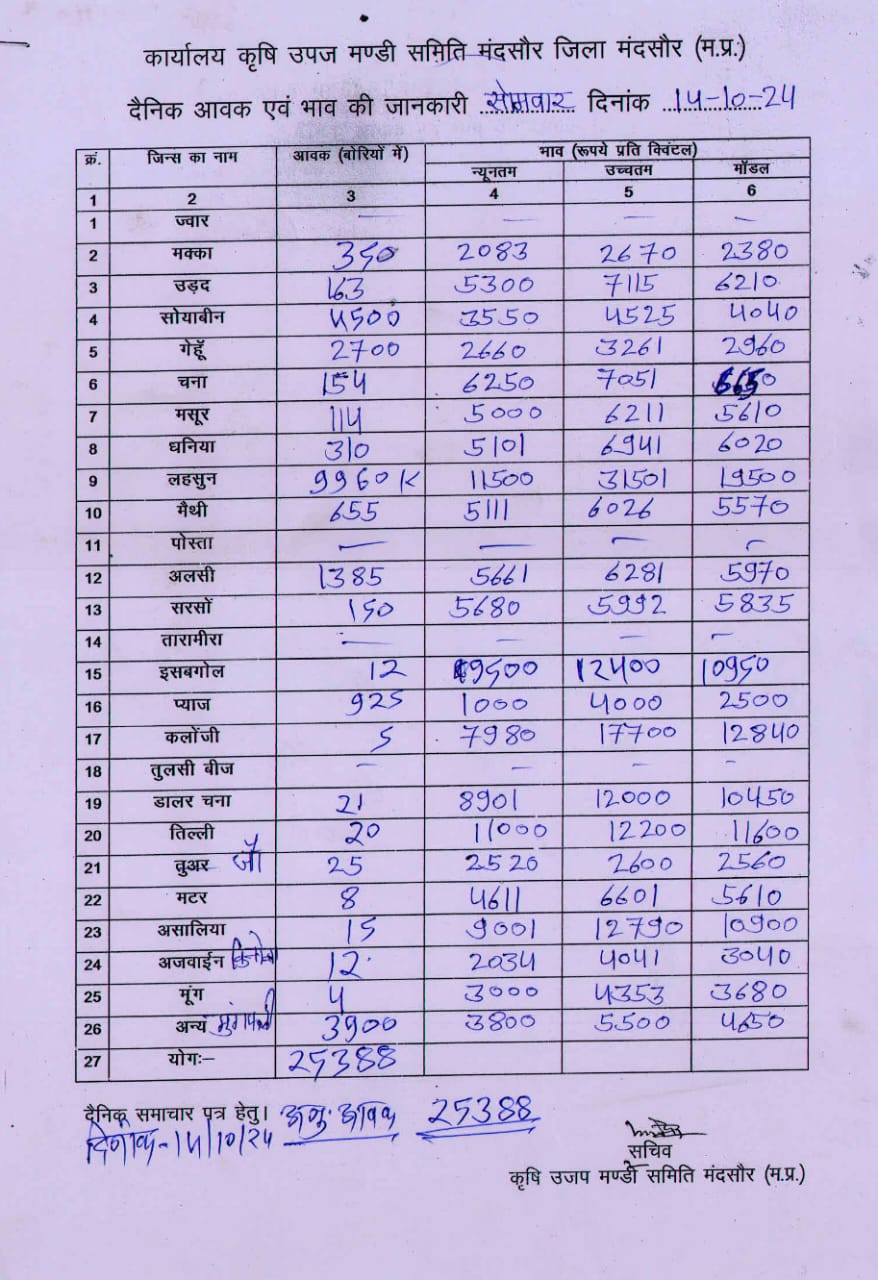 कार्यालय कृषि उपज मण्डी समिति मंदसौर जिला मंदसौर (म.प्र.)
दैनिक आवक एवं भाव की जानकारी सोमवार दिनांक 14-10-24
क्रं. जिन्स का नाम आवक (बोरियों में) भाव (रूपये प्रति क्विंटल)
न्यूनतम उच्चतम मॉडल
1 2 3 4 5 6
1 ज्वार — — — —
2 मक्का 350 2083 2670 2380
3 उड़द 163 5300 7115 6210
4 सोयाबीन 4500 3550 4525 4040
5 गेहूॅ 2700 2660 3261 2960
6 चना 154 6250 7051 6650
7 मसूर 114 5000 6211 5610
8 धनिया 310 5101 6941 6020
9 लहसुन 9960 K 11500 31501 19500
10 मैथी 655 5111 6026 5570
11 पोस्ता — — — —
12 अलसी 1385 5661 6281 5970
13 सरसों 150 5680 5992 5835
14 तारामीरा — — — —
15 इसबगोल 12 9500 12400 10950
16 प्याज 925 1000 4000 2500
17 कलोंजी 5 7980 17700 12840
18 तुलसी बीज — — — —
19 डालर चना 21 8901 12000 10450
20 तिल्ली 20 11000 12200 11600
21 तुअर जौ 25 2520 2600 2560
22 मटर 8 4611 6601 5610
23 असालिया 15 9001 12790 10900
24 अजवाईन 12 2034 4041 3040
25 मूंग 4 3000 4353 3680
26 अन्य मुंगफली 3900 3800 5500 4650
27 योगः– 25388
दैनिक समाचार पत्र हेतु। अनु. आवक 25388
दिनांक-14/10/24
सचिव
कृषि उजप मण्डी समिति मंदसौर (म.प्र.)